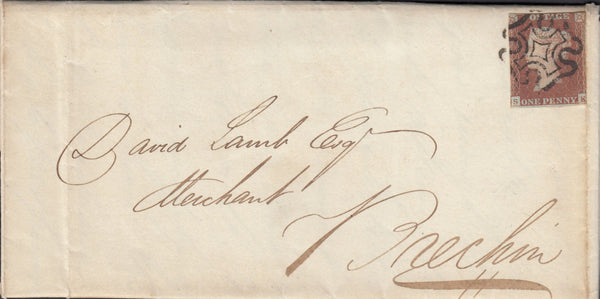 POSTAGE
S K
ONE PENNY
David Lamb Esqr
Merchant
Brechin